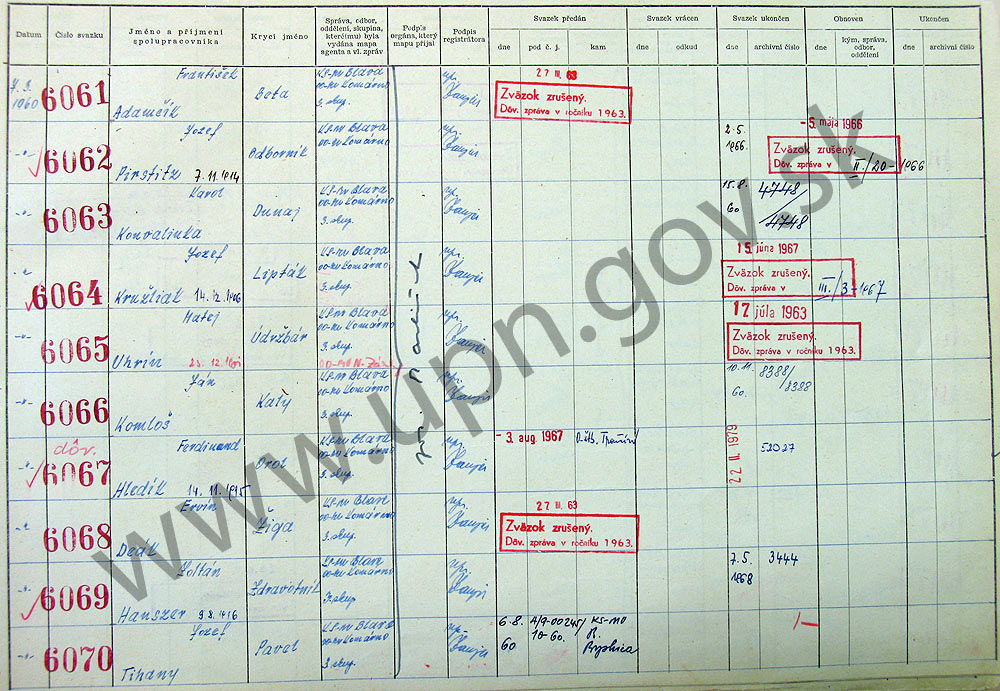 Datum
Číslo svazku
Jméno a příjmení spolupracovníka
Krycí jméno
Správa, odbor, oddělení, skupina, které(mu) byla vydána mapa agenta a vl. zpráv
Podpis orgána, který mapu přijal
Podpis registrátora
Svazek předán
dne
pod č. j.
kam
Svazek vrácen
dne
odkud
Svazek ukončen
dne
archivní číslo
Obnoven
dne
kým, správa, odbor, oddělení
Ukončen
dne
archivní číslo
1960
6061
František
Adamčík
Beta
KS-MV Blava
OO-MV Komárno
3. skup.
27 III. 63
Zväzok zrušený.
Dôv. zpráva v ročníku 1963.
6062
Jozef
Pirstitz 7.11.1914
Odborník
KS-MV Blava
OO-MV Komárno
3. skup.
2.5.
1966.
- 5. mája 1966
Zväzok zrušený.
Dôv. zpráva v II./20-1966
6063
Karol
Konvalinka
Dunaj
KS-MV Blava
OO-MV Komárno
3. skup.
15.8.
60
4748/
4748
6064
Jozef
Kružliak 14.12.1906
Lipták
KS-MV Blava
OO-MV Komárno
3. skup.
15 júna 1967
Zväzok zrušený.
Dôv. zpráva v III./3-1967
6065
Matej
Uhrín
Údržbár
KS-MV Blava
OO-MV Komárno
3. skup.
17 júla 1963
Zväzok zrušený.
Dôv. zpráva v ročníku 1963.
6066
Ján
Komloš
Katy
KS-MV Blava
OO-MV Komárno
3. skup.
10.11.
60.
8388/
8388
dôv.
6067
Ferdinand
Hledík 14.11.1915
Orol
KS-MV Blava
OO-MV Komárno
3. skup.
- 3. aug. 1967
22 II 1979
52027
6068
Ervín
Deák
Žiga
KS-MV Blava
OO-MV Komárno
3. skup.
27 III. 63
Zväzok zrušený.
Dôv. zpráva v ročníku 1963.
6069
Zoltán
Hanszer 9.8.1916
Zdravotník
KS-MV Blava
OO-MV Komárno
3. skup.
7.5.
1968
3444
6070
Jozef
Tihany
Pavel
KS-MV Blava
OO-MV Komárno
3. skup.
6.8.
60
A/7-00245/
10-60.
KS-MV
B.
Bystrica
www.upn.gov.sk